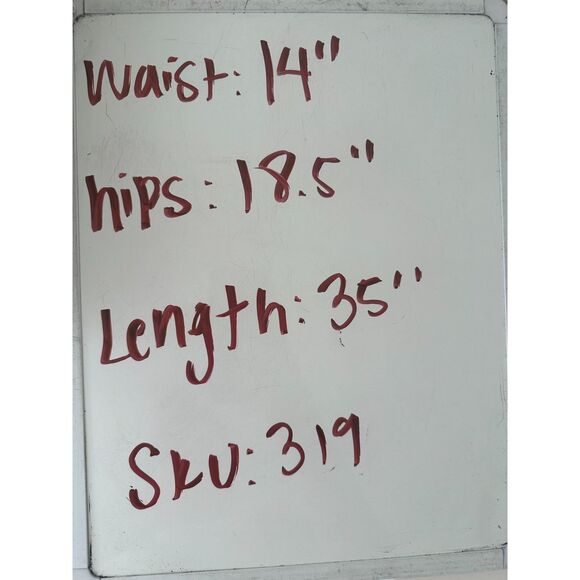 Waist: 14"
hips: 18.5"
Length: 35"
Sku: 319